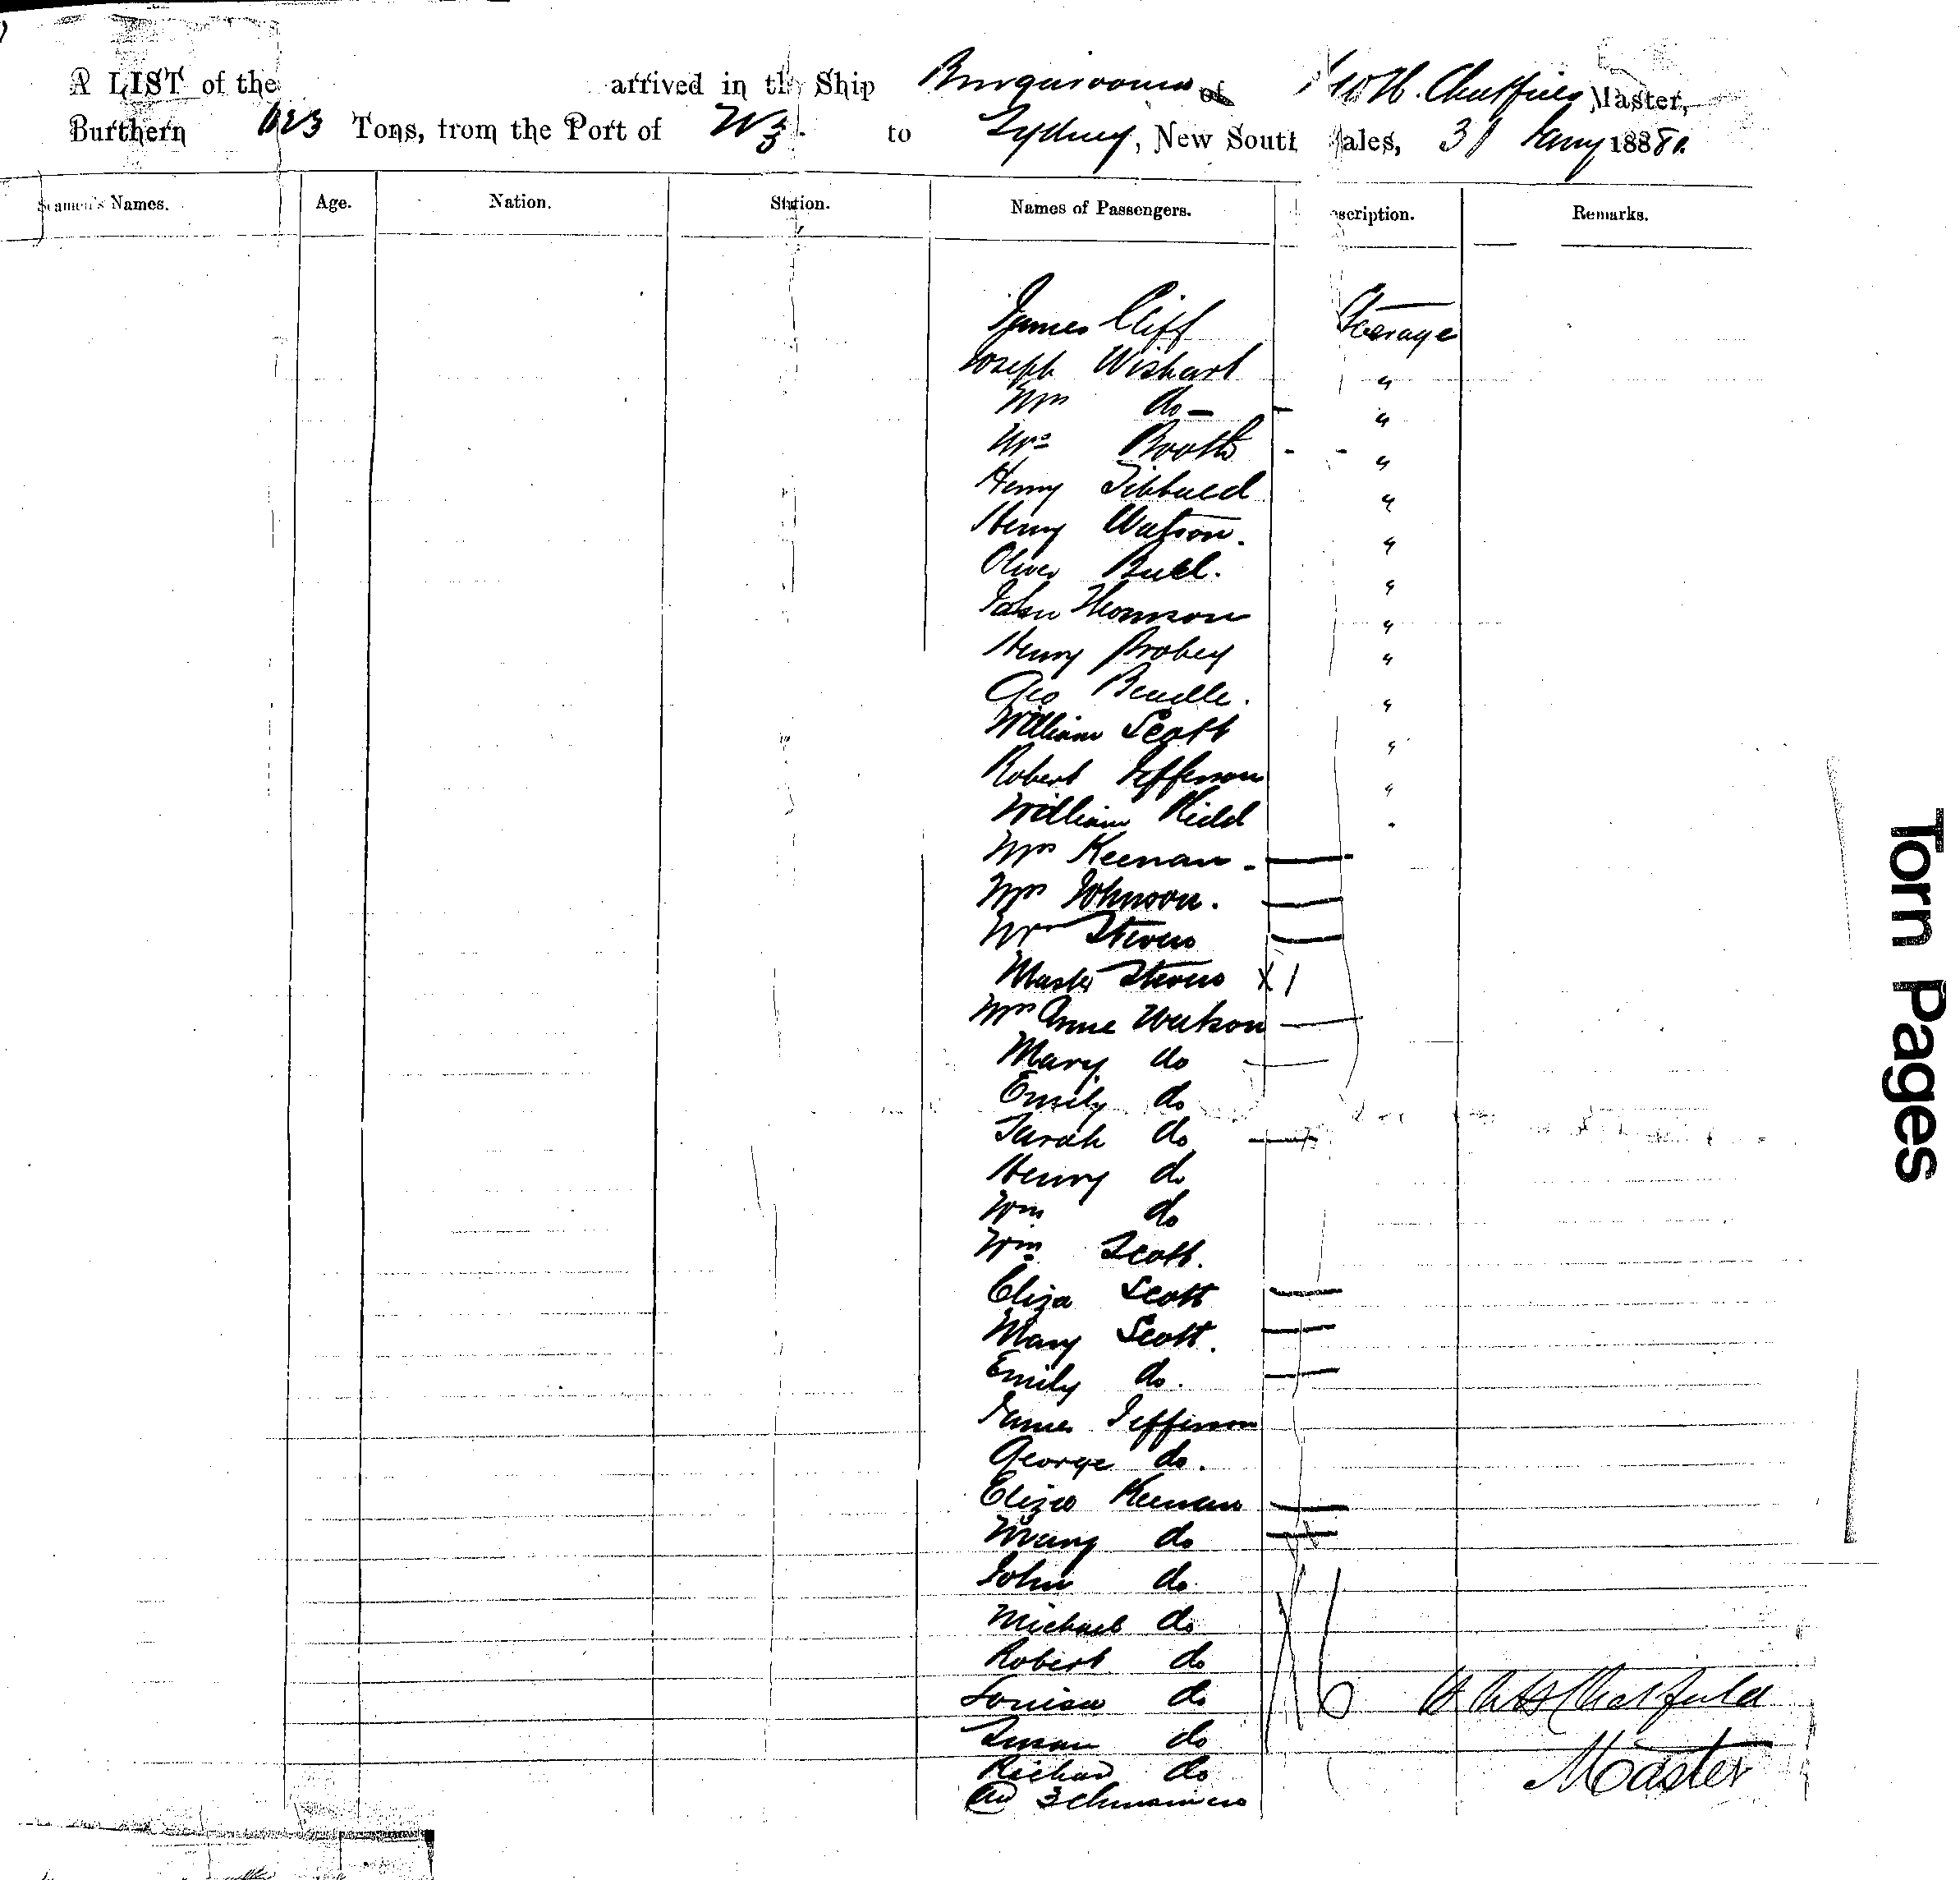 A LIST of the arrived in the Ship of W H. Chatfield Master,
Burthern 623 Tons, from the Port of N Z. to Sydney, New South Wales, 31 Jany 1888
Seamen's Names. Age. Nation. Station. Names of Passengers. escription. Remarks.
James Cliff Steerage
Joseph Wishart "
Wm do - "
Mrs Booth "
Henry "
Henry Watson. "
Oliver Bull. "
John Thomson "
Henry Probey "
Geo Beadle. "
William Scott "
Robert Jefferson "
William Kidd "
Mrs Keenan
Mrs Johnson.
Mrs Stevens
Master Stevens X 1
Mrs Anne Watson
Mary do
Emily do
Sarah do
Henry do
Wm do
Wm Scott.
Eliza Scott
Mary Scott.
Emily do.
James Jefferson
George do.
Eliza Keenan
Mary do
John do
Michael do
Robert do
Louisa do X 6 Chatfield
Susan do
Richard do Master
3 Chinamen
Torn Pages